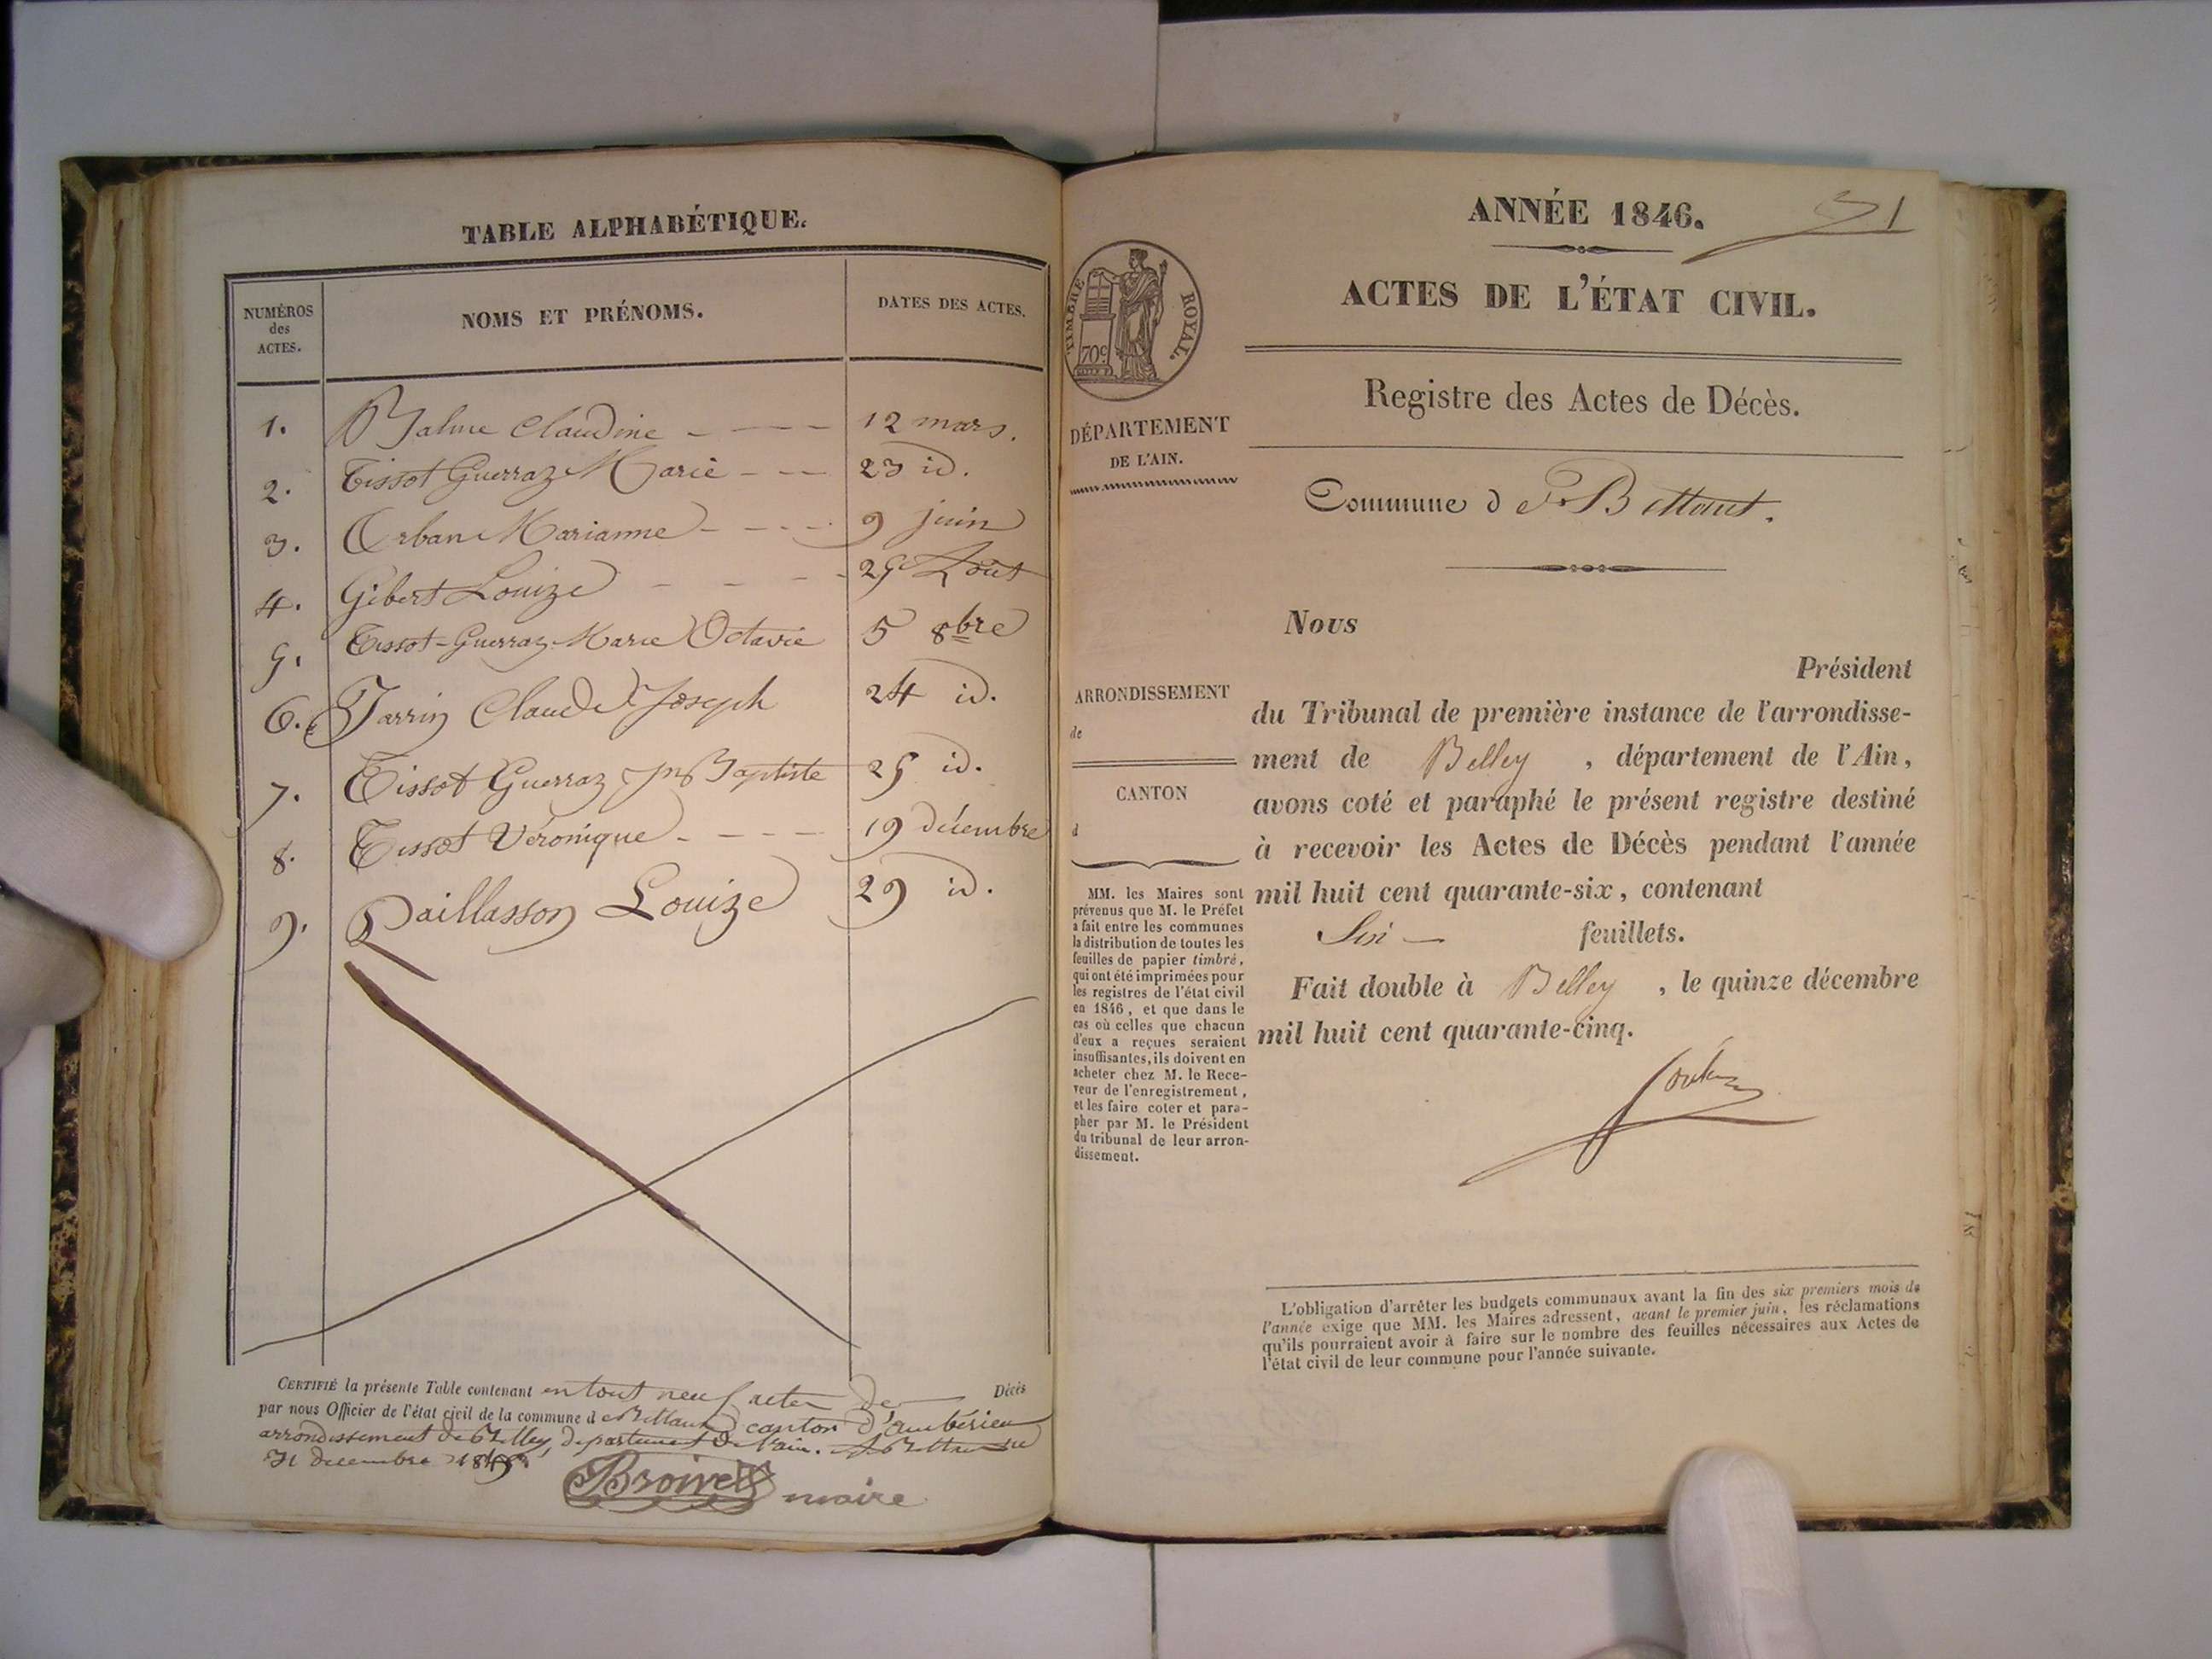 TABLE ALPHABÉTIQUE.
NUMÉROS
des
ACTES.
NOMS ET PRÉNOMS.
DATES DES ACTES.
1. Balme Claudine - - - - 12 mars.
2. Tissot Guerraz Marie - - - 23 id.
3. Orban Marianne - - - - 9 juin
4. Gibert Louize - - - - 25 Août
5. Tissot-Guerraz Marie Octavie 5 8bre
6. Jarrin Claude Joseph 24 id.
7. Tissot Guerraz Jn Baptiste 25 id.
8. Tissot Véronique - - - - 19 décembre
9. Paillasson Louize 29 id.
CERTIFIÉ la présente Table contenant en tout neuf actes de Décès
par nous Officier de l'état civil de la commune de Bettant canton d'ambérieu
arrondissement de Belley, département de l'ain. à Bettant le
31 decembre
maire
ANNÉE 1846.
31
ACTES DE L'ÉTAT CIVIL.
TIMBRE ROYAL.
70c
Registre des Actes de Décès.
DÉPARTEMENT
DE L'AIN.
Commune de Bettant.
Nous
Président
ARRONDISSEMENT
de
CANTON
d
du Tribunal de première instance de l'arrondisse-
ment de Belley , département de l'Ain,
avons coté et paraphé le présent registre destiné
à recevoir les Actes de Décès pendant l'année
mil huit cent quarante-six, contenant
Six — feuillets.
Fait double à Belley , le quinze décembre
mil huit cent quarante-cinq.
MM. les Maires sont
prévenus que M. le Préfet
a fait entre les communes
la distribution de toutes les
feuilles de papier timbré,
qui ont été imprimées pour
les registres de l'état civil
en 1846, et que dans le
cas où celles que chacun
d'eux a reçues seraient
insuffisantes, ils doivent en
acheter chez M. le Rece-
veur de l'enregistrement,
et les faire coter et para-
pher par M. le Président
du tribunal de leur arron-
dissement.
L'obligation d'arrêter les budgets communaux avant la fin des six premiers mois de
l'année exige que MM. les Maires adressent, avant le premier juin, les réclamations
qu'ils pourraient avoir à faire sur le nombre des feuilles nécessaires aux Actes de
l'état civil de leur commune pour l'année suivante.